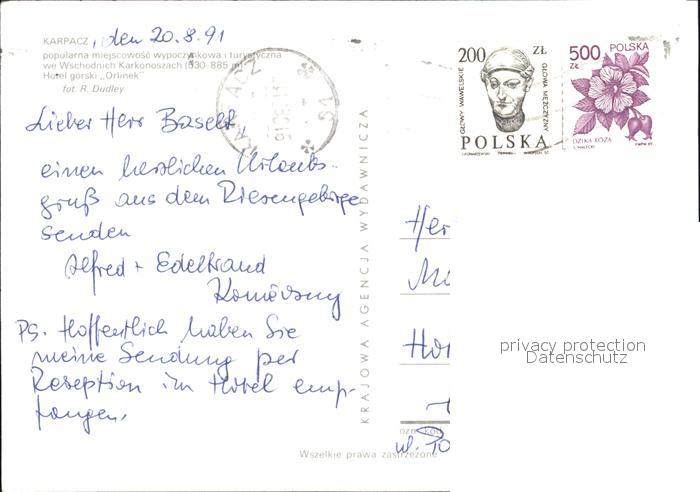 KARPACZ, den 20.8.91
popularna miejscowość wypoczynkowa i turystyczna
we Wschodnich Karkonoszach (530-885 m)
Hotel górski „Orlinek"
fot. R. Dudley
Lieber Herr
einen herzlichen Urlaubs-
gruß aus dem Riesengebirge
senden
Alfred + Edeltraud
PS. Hoffentlich haben Sie
meine Sendung per
Rezeption im Hotel emp-
fangen.
KRAJOWA AGENCJA WYDAWNICZA
200 ZŁ
GŁOWY WAWELSKIE
GŁOWA MĘŻCZYZNY
POLSKA
500 ZŁ
POLSKA
DZIKA RÓŻA
KARPACZ
Her
Ho
ul.
privacy protection
Datenschutz
Wszelkie prawa zastrzeżone